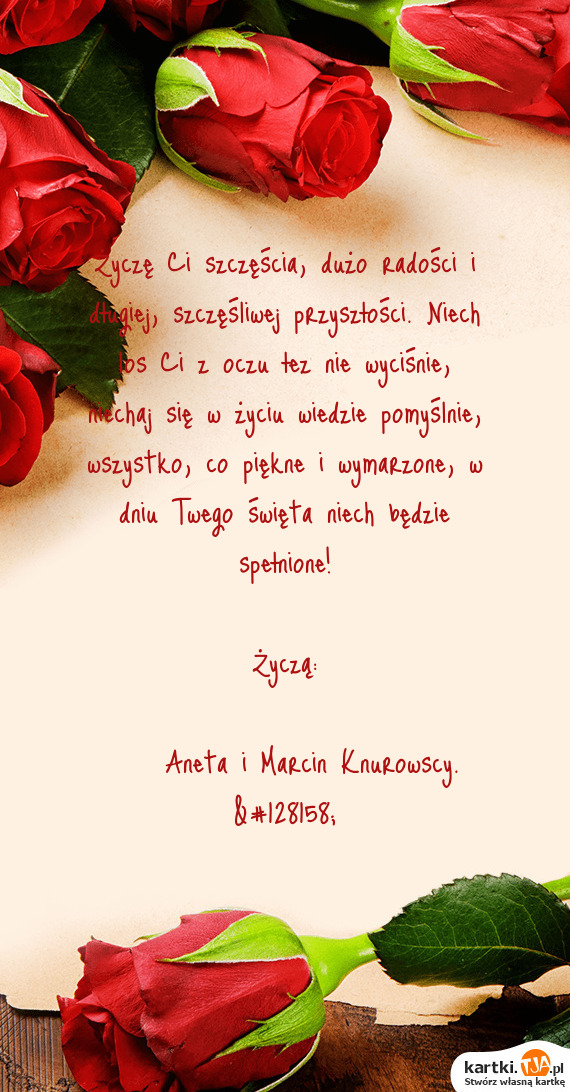 Życzę Ci szczęścia, dużo radości i
długiej, szczęśliwej przyszłości. Niech
los Ci z oczu łez nie wyciśnie,
niechaj się w życiu wiedzie pomyślnie,
wszystko, co piękne i wymarzone, w
dniu Twego święta niech będzie
spełnione!
Życzą:
Aneta i Marcin Knurowscy.
&#128158;
kartki.TJA.pl
Stwórz własną kartkę